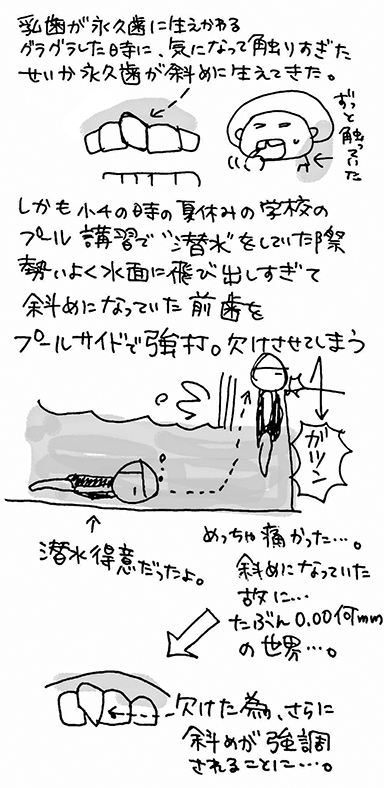 乳歯が永久歯に生えかわる
グラグラした時に、気になって触りすぎた
せいか永久歯が斜めに生えてきた。
ずっと触っていた
しかも小4の時の夏休みの学校の
プール講習で"潜水"をしていた際
勢いよく水面に飛び出しすぎて
斜めになっていた前歯を
プールサイドで強打。欠けさせてしまう
ガツン
潜水得意だったよ。
めっちゃ痛かった…。
斜めになっていた
故に…
たぶん0.00何mm
の世界…。
欠けた為、さらに
斜めが強調
されることに…。